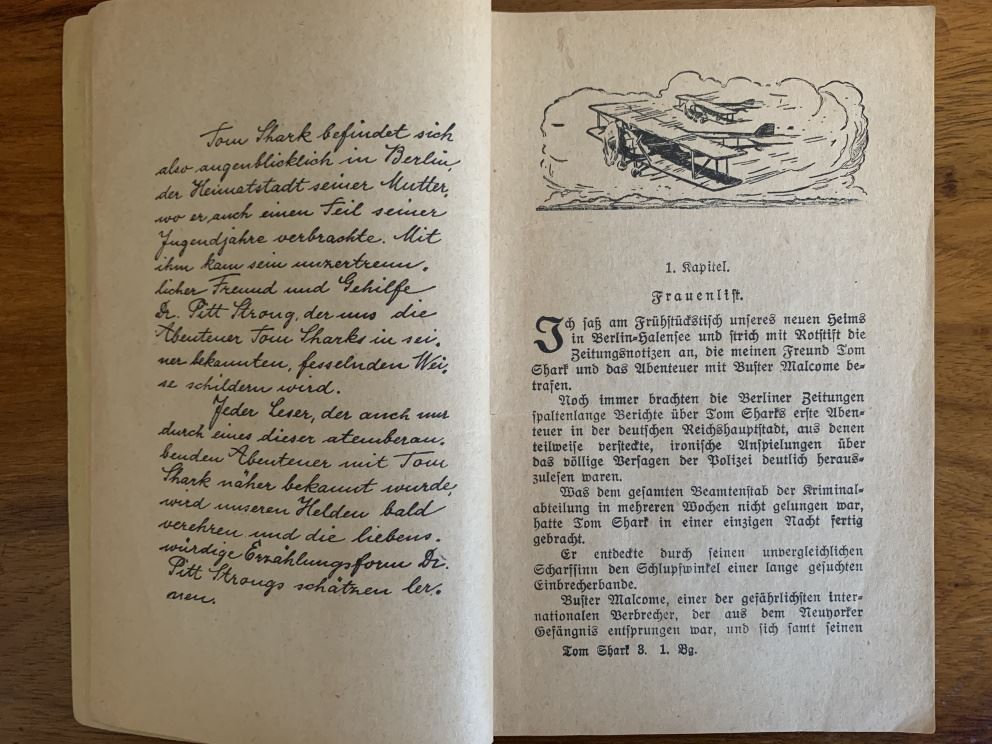 Tom Shark befindet sich
also augenblicklich in Berlin,
der Heimatstadt seiner Mutter,
wo er auch einen Teil seiner
Jugendjahre verbrachte. Mit
ihm kam sein unzertrenn-
licher Freund und Gehilfe
Dr. Pitt Strong, der uns die
Abenteuer Tom Sharks in sei-
ner bekannten, fesselnden Wei-
se schildern wird.
Jeder Leser, der auch nur
durch eines dieser atemberau-
benden Abenteuer mit Tom
Shark näher bekannt wurde,
wird unseren Helden bald
verehren und die liebens-
würdige Erzählungsform Dr.
Pitt Strongs schätzen ler-
nen.
1. Kapitel.
Frauenlist.
Ich saß am Frühstückstisch unseres neuen Heims
in Berlin-Halensee und strich mit Rotstift die
Zeitungsnotizen an, die meinen Freund Tom
Shark und das Abenteuer mit Buster Malcome be-
trafen.
Noch immer brachten die Berliner Zeitungen
spaltenlange Berichte über Tom Sharks erste Aben-
teuer in der deutschen Reichshauptstadt, aus denen
teilweise versteckte, ironische Anspielungen über
das völlige Versagen der Polizei deutlich heraus-
zulesen waren.
Was dem gesamten Beamtenstab der Kriminal-
abteilung in mehreren Wochen nicht gelungen war,
hatte Tom Shark in einer einzigen Nacht fertig
gebracht.
Er entdeckte durch seinen unvergleichlichen
Scharfsinn den Schlupfwinkel einer lange gesuchten
Einbrecherbande.
Buster Malcome, einer der gefährlichsten inter-
nationalen Verbrecher, der aus dem Neuyorker
Gefängnis entsprungen war, und sich samt seinen
Tom Shark 3. 1. Bg.